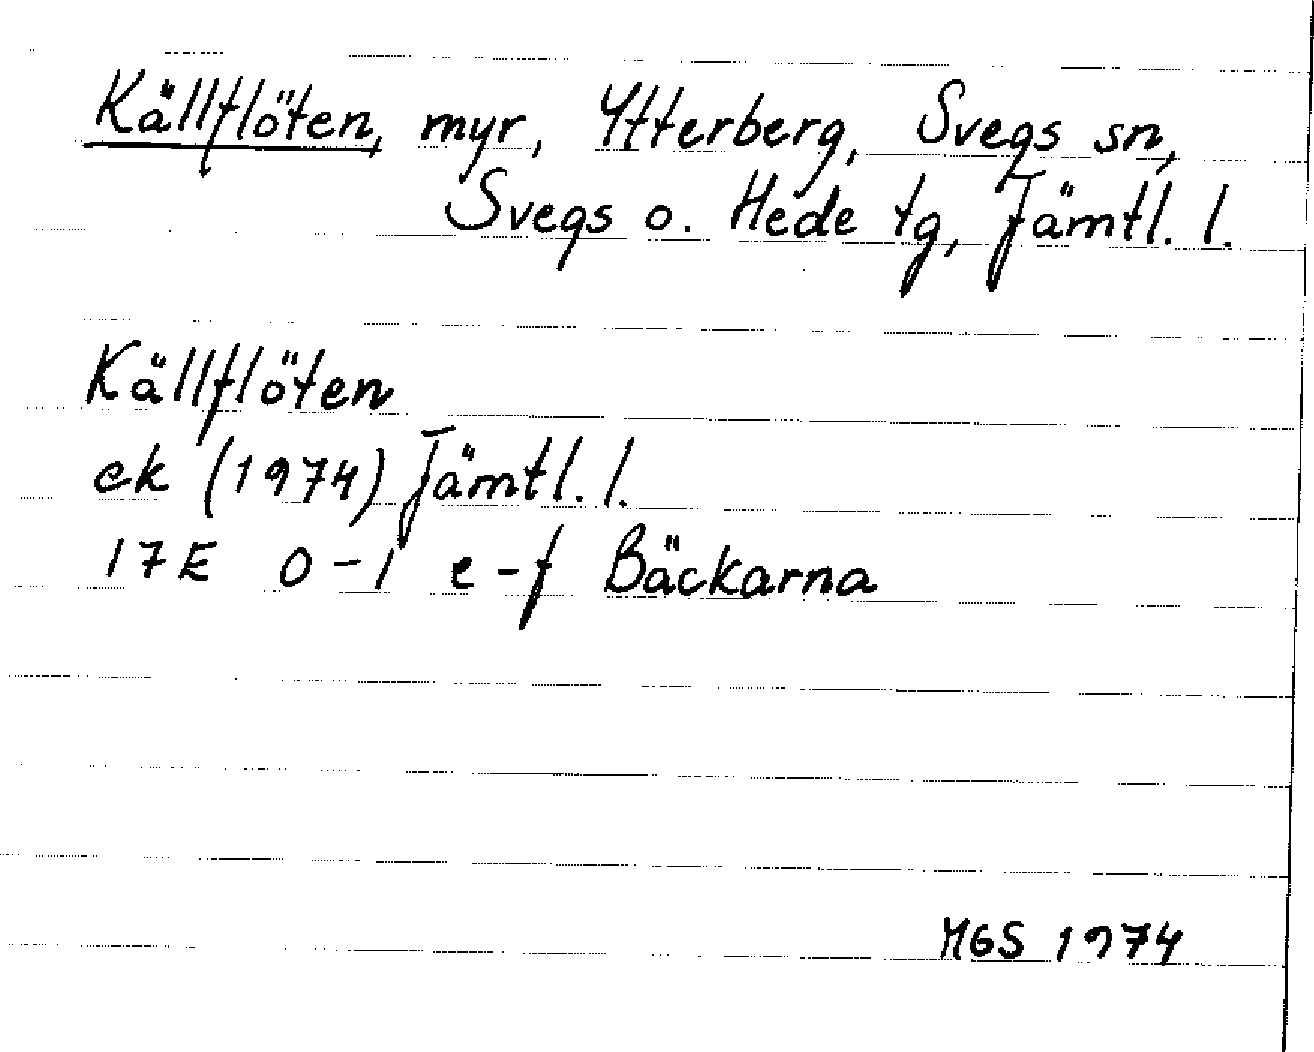 Källflöten, myr, Ytterberg, Svegs sn,
Svegs o. Hede tg, Jämtl. l.
Källflöten
ek (1974) Jämtl. l.
17E 0-1 e-f Bäckarna
MGS 1974